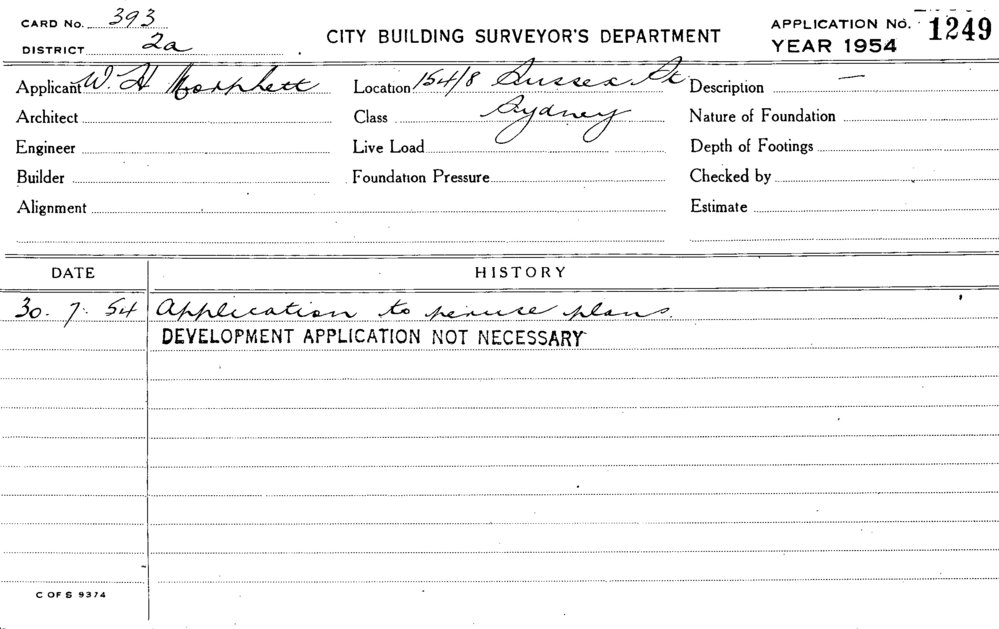 CARD No. 393
DISTRICT 2a
CITY BUILDING SURVEYOR'S DEPARTMENT
APPLICATION No. 1249
YEAR 1954
Applicant W. H Morphett Location 154/8 Sussex St Description —
Architect Class Sydney Nature of Foundation
Engineer Live Load Depth of Footings
Builder Foundation Pressure Checked by
Alignment Estimate
DATE HISTORY
30. 7. 54 Application to peruse plans.
DEVELOPMENT APPLICATION NOT NECESSARY
C OF S 9374